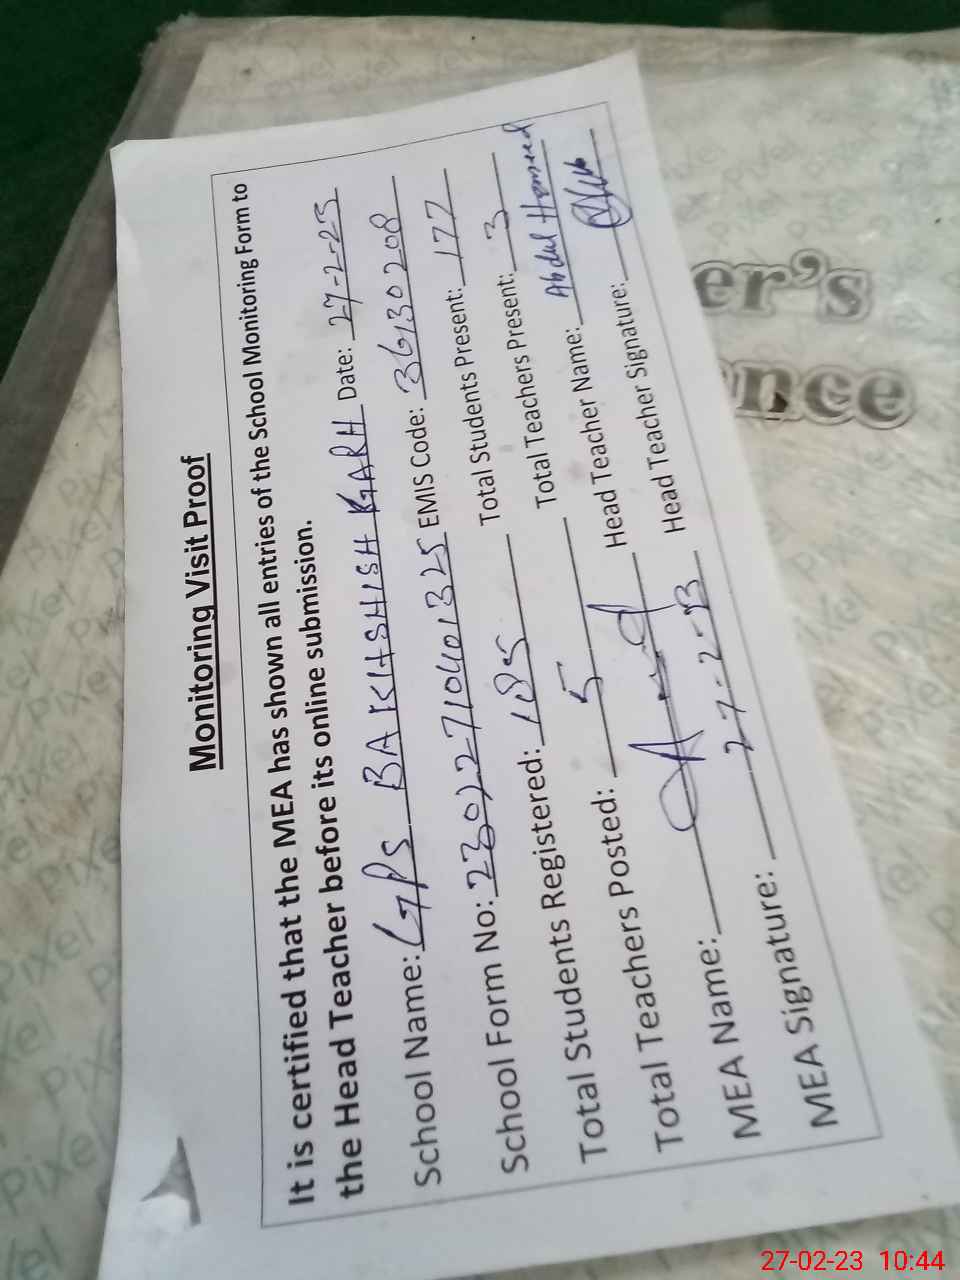 Monitoring Visit Proof
It is certified that the MEA has shown all entries of the School Monitoring Form to
the Head Teacher before its online submission.
School Name: GPS BAKHSHISH GARH Date: 27-2-23
School Form No: 23022710401325 EMIS Code: 36130208
Total Students Registered: 185 Total Students Present: 177
Total Teachers Posted: 5 Total Teachers Present: 3
MEA Name: Head Teacher Name: Abdul Hameed
MEA Signature: 27-2-23 Head Teacher Signature:
er's
nce
Pixel
27-02-23 10:44